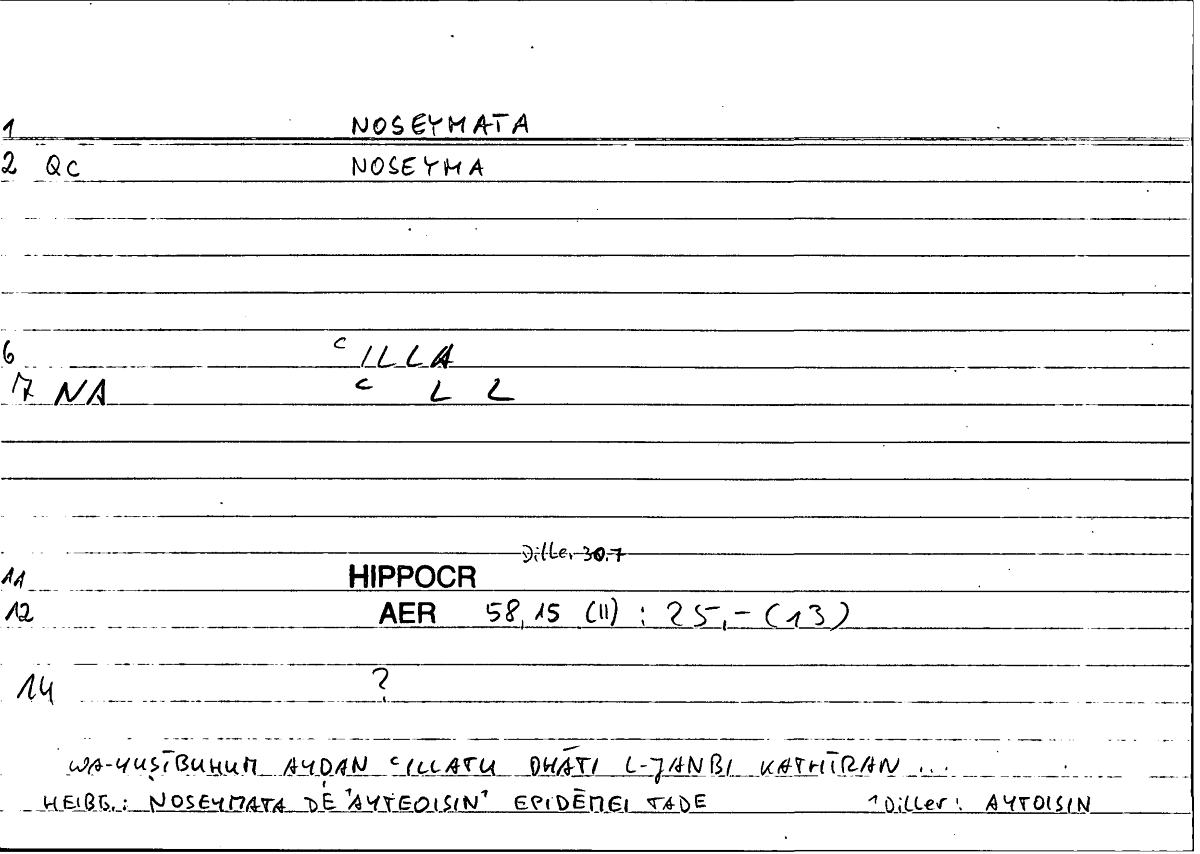 1 NOSEYMATA
2 QC NOSEYMA
6 ʿILLA
17 NA ʿ L L
Diller 30.7
11 HIPPOCR
12 AER 58,15 (11) : 25,- (13)
14 ?
WA-YUṢĪBUHUM AYḌAN ʿILLATU DHĀTI L-JANBI KATHĪRAN ...
HEIBG.: NOSEYMATA DE ¹AYTEOISIN¹ EPIDĒMEI TADE ¹Diller: AYTOISIN